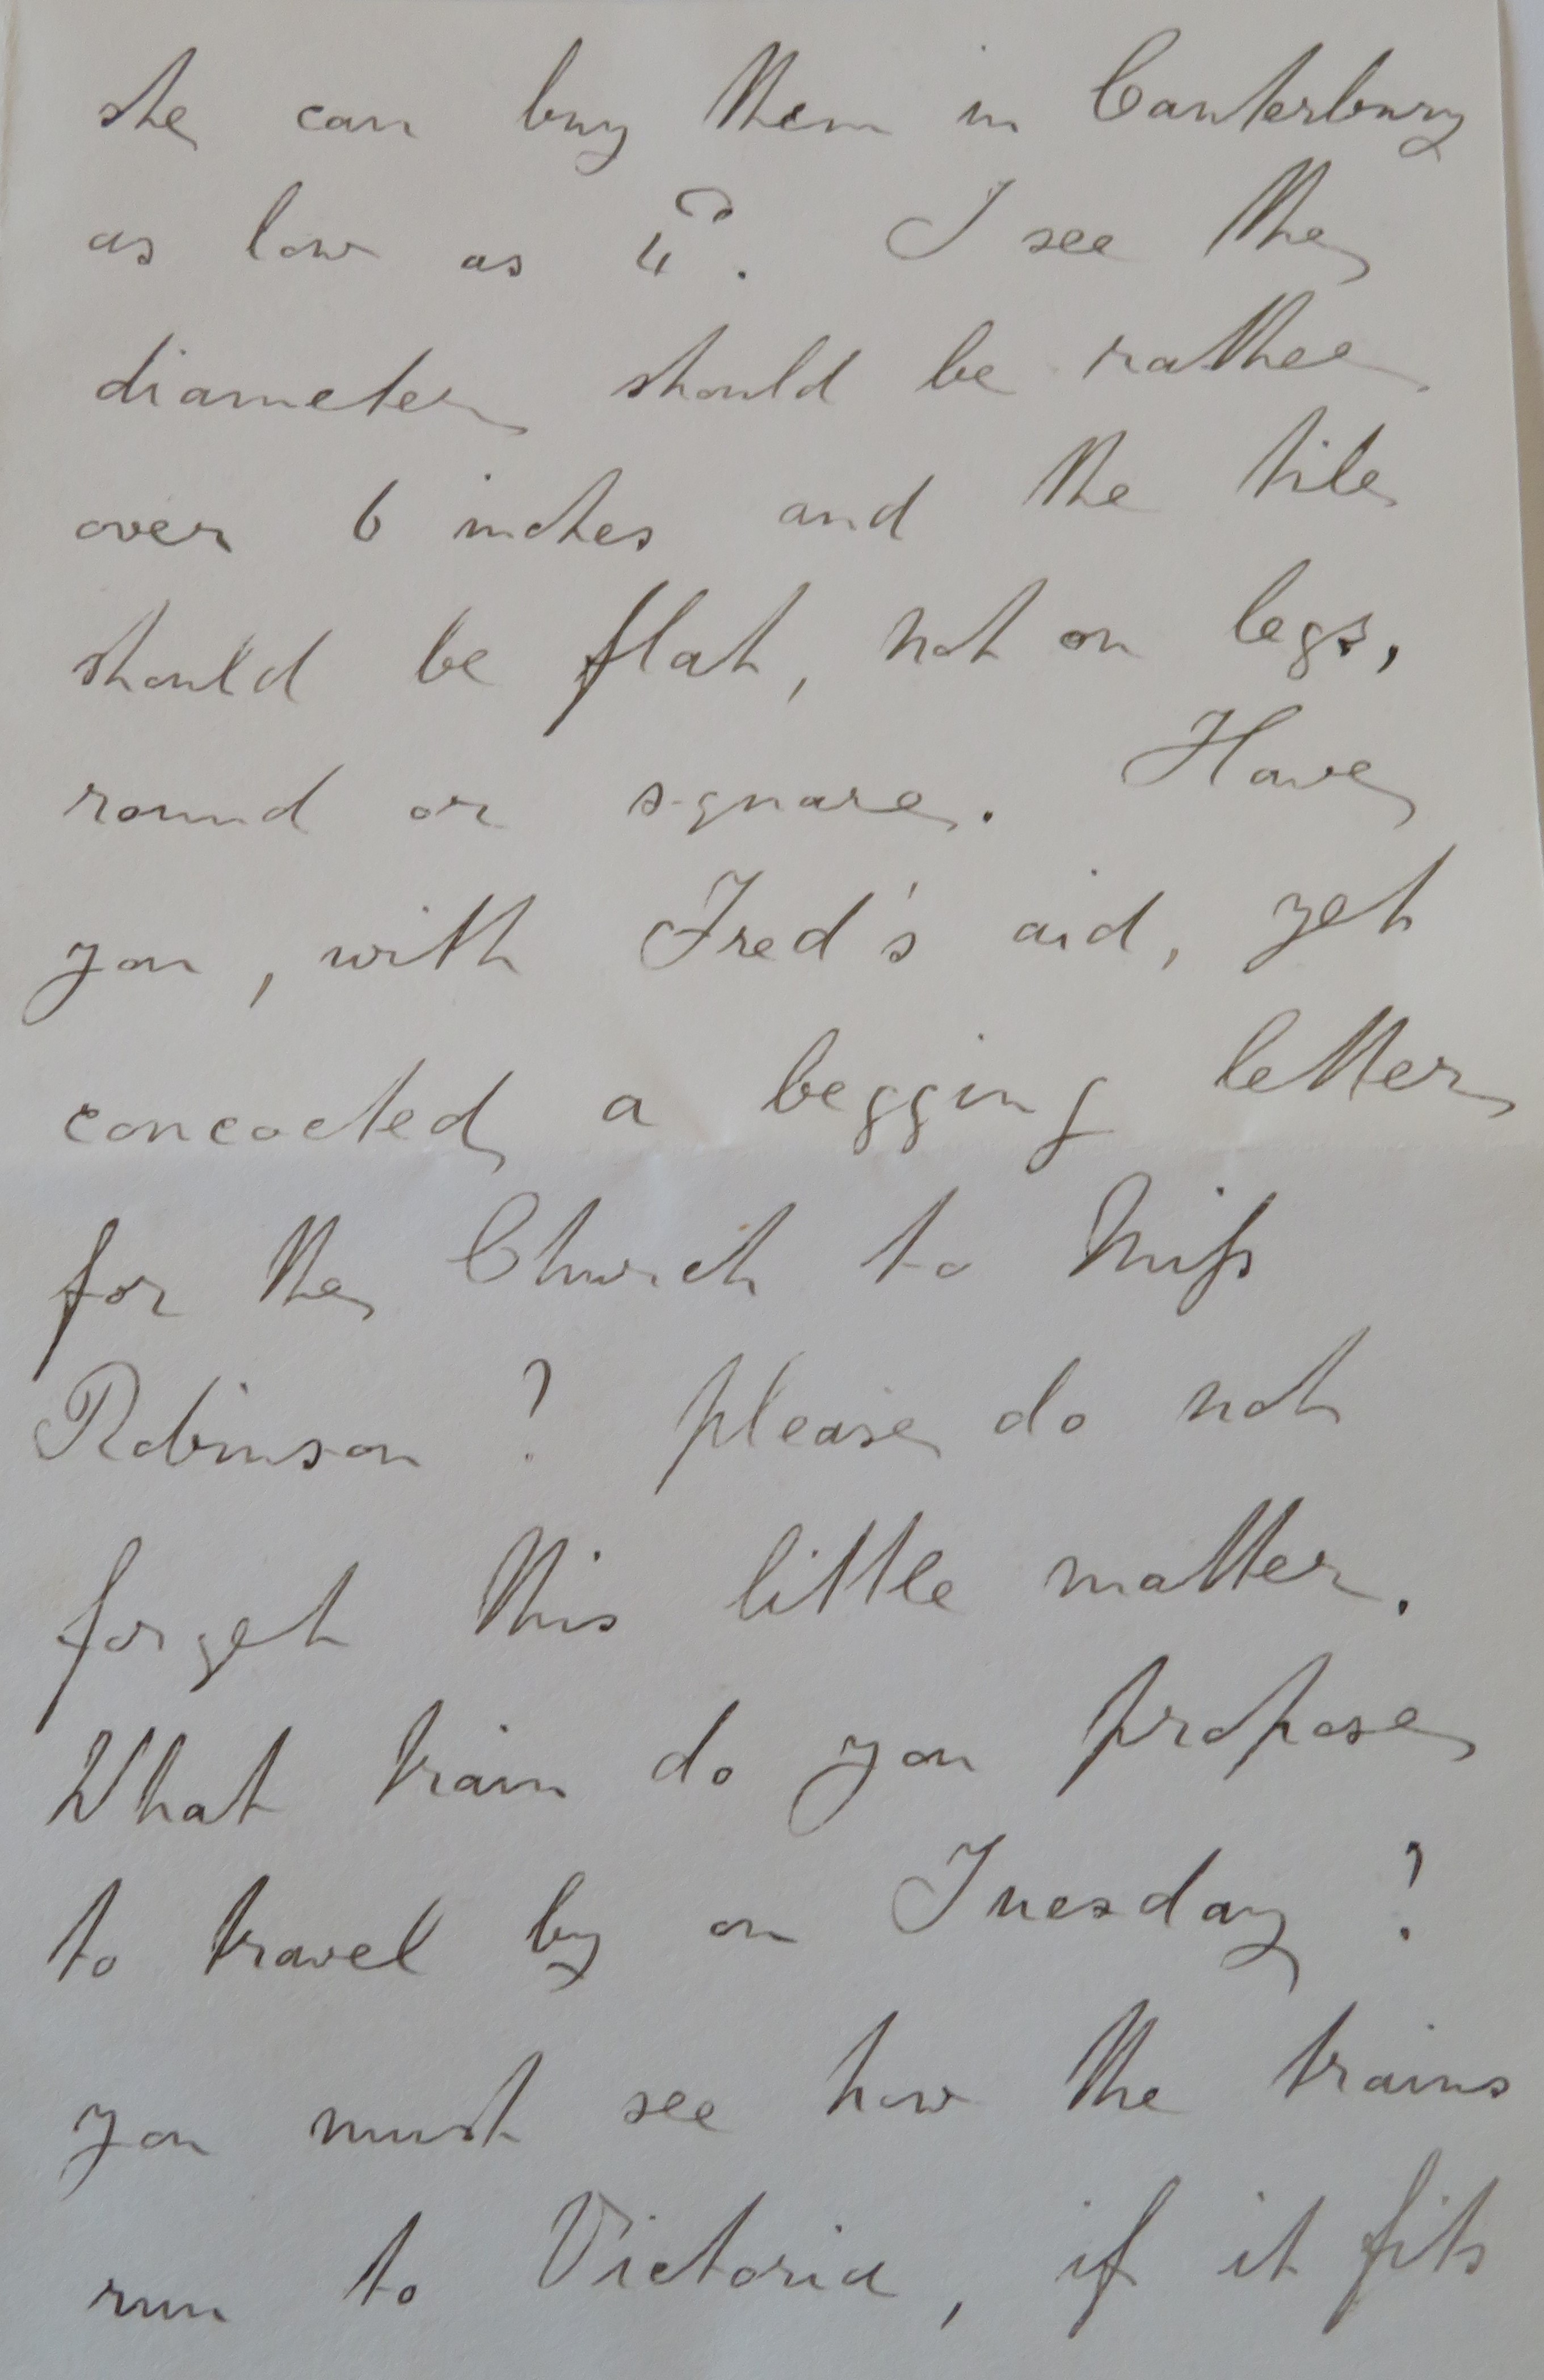 she can buy them in Canterbury
as low as 4d. I see the
diameter should be rather
over 6 inches and the tile
should be flat, not on legs,
round or square. Have
you, with Fred's aid, yet
concocted a begging letter
for the Church to Miss
Robinson? please do not
forget this little matter.
What train do you propose
to travel by on Tuesday?
you must see how the trains
run to Victoria, if it fits